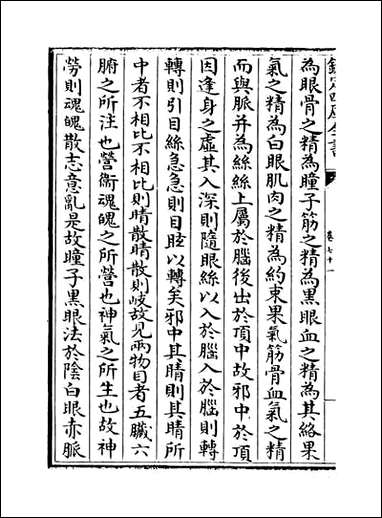 欽定四庫全書
卷七十一
為眼骨之精為瞳子筋之精為黒眼血之精為其絡果
氣之精為白眼肌肉之精為約束果氣筋骨血氣之精
而與脈并為絲絲上屬於腦後出於項中故邪中於項
因逢身之虛其入深則隨眼絲以入於腦入於腦則轉
轉則引目絲急急則目眩以轉矣邪中其睛則其睛所
中者不相比不相比則睛散睛散則岐故見兩物目者五臟六
腑之所注也營衞魂魄之所營也神氣之所生也故神
勞則魂魄散志意亂是故瞳子黒眼法於陰白眼赤脈